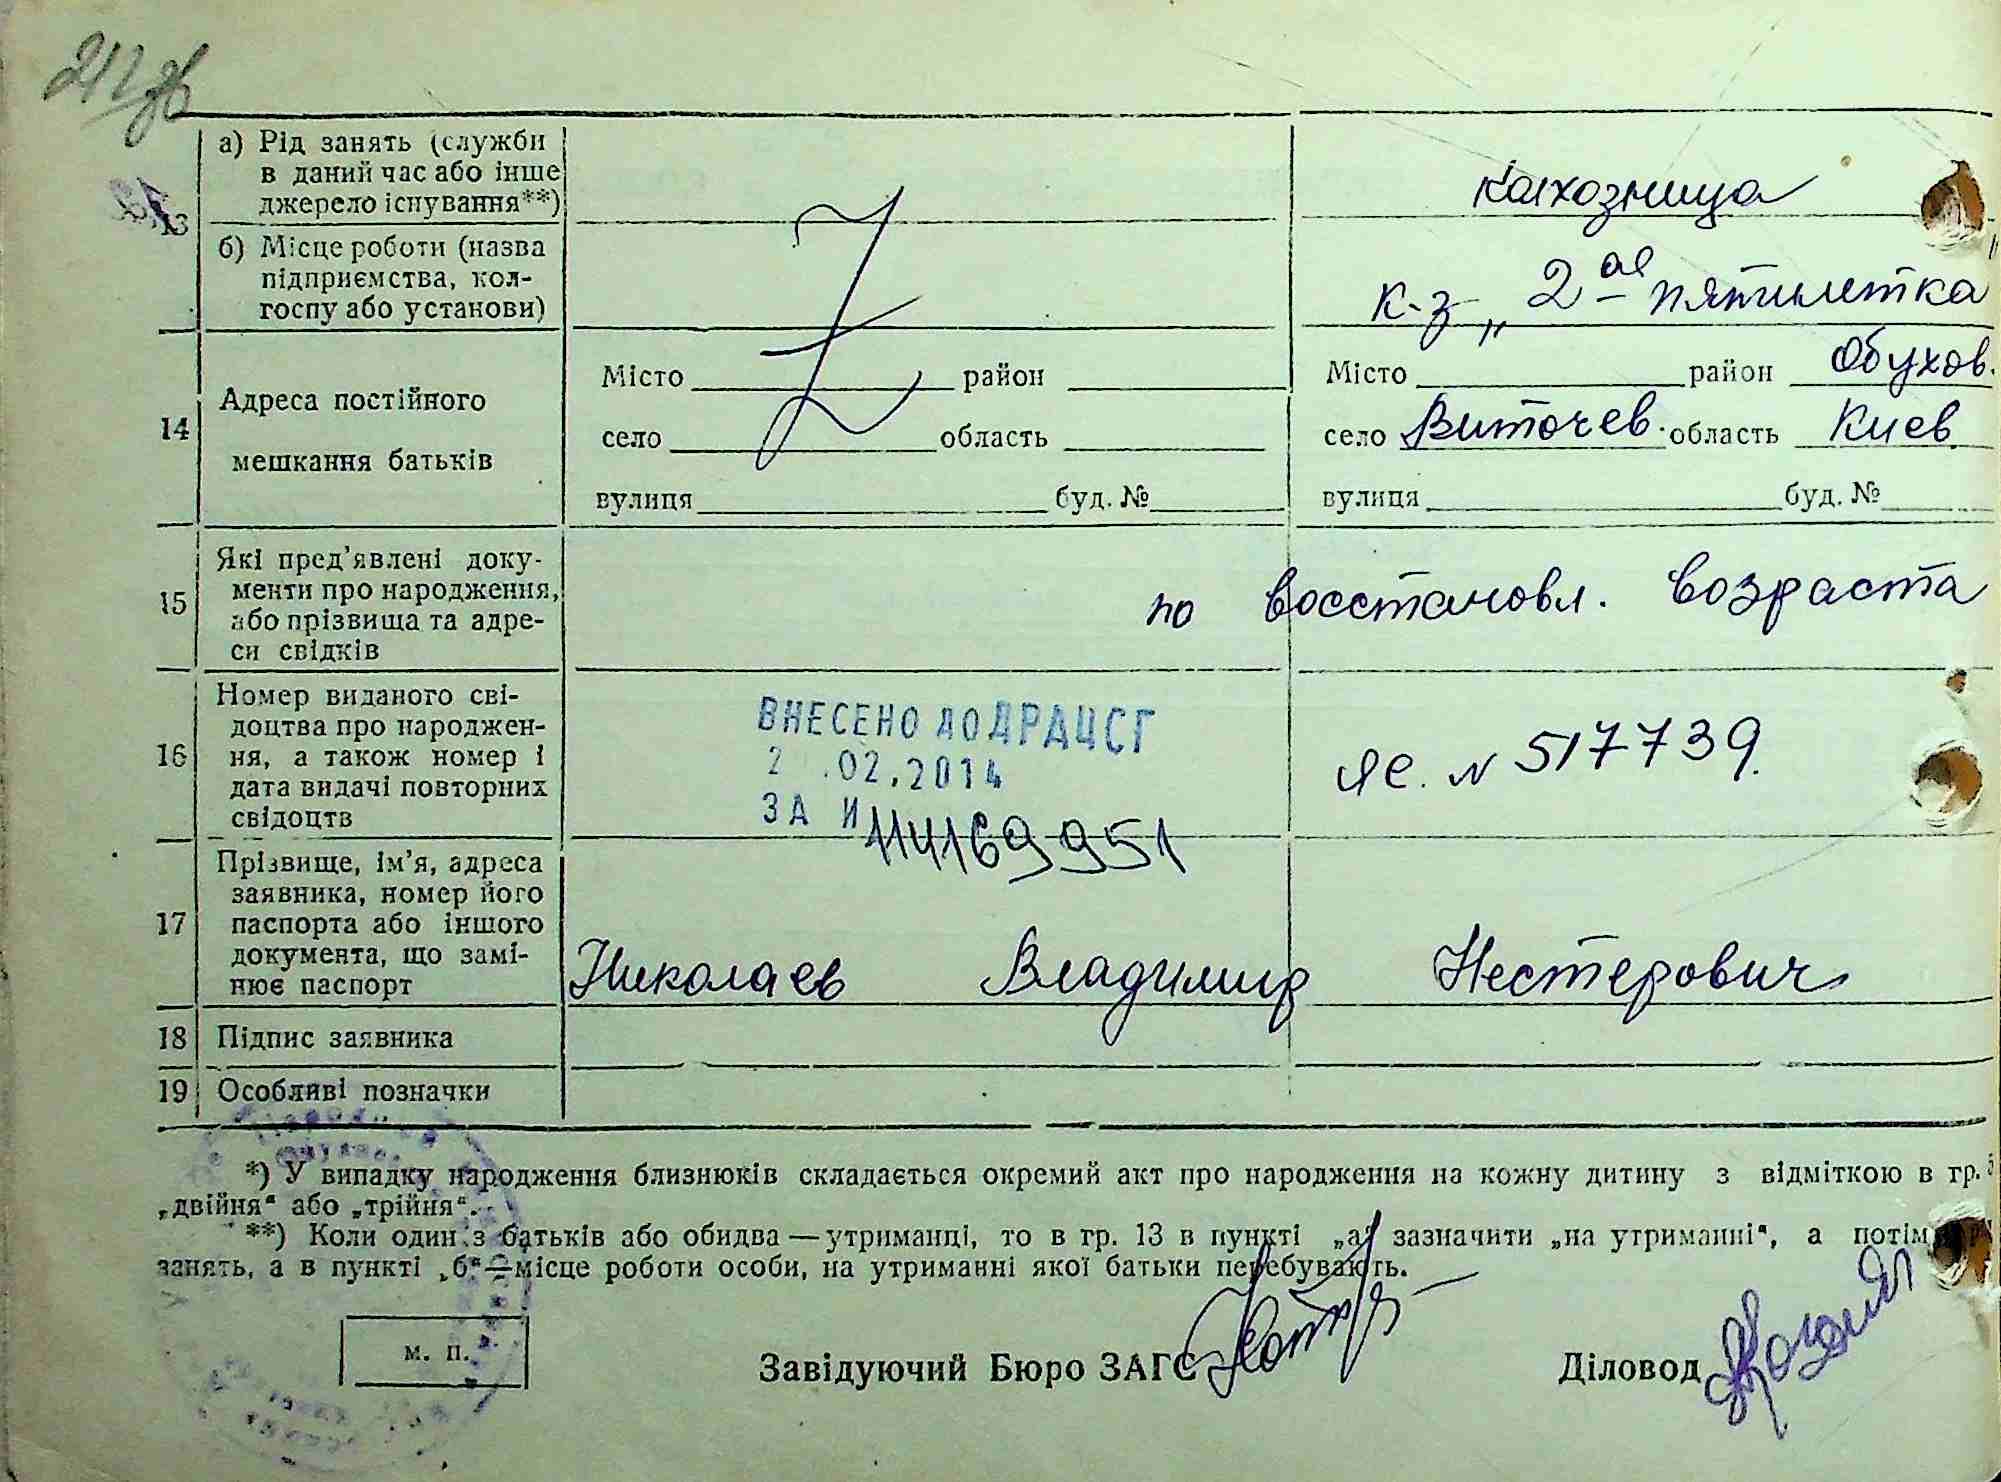 212 зв
13
а) Рід занять (служби
в даний час або інше
джерело існування**)
колхозница
б) Місце роботи (назва
підприємства, кол-
госпу або установи)
к-з „2ая пятилетка"
14
Адреса постійного
мешкання батьків
Місто район
село область
вулиця буд. №
Місто район Обухов.
село Виточев. область Киев
вулиця буд. №
15
Які пред’явлені доку-
менти про народження,
або прізвища та адре-
си свідків
по восстановл. возраста
16
Номер виданого сві-
доцтва про народжен-
ня, а також номер і
дата видачі повторних
свідоцтв
ВНЕСЕНО ДО ДРАЦСГ
2 .02.2014
ЗА И 114169951
ЯС. N 517739.
17
Прізвище, ім’я, адреса
заявника, номер його
паспорта або іншого
документа, що замі-
нює паспорт
Николаев Владимир Нестерович
18 Підпис заявника
19 Особливі позначки
*) У випадку народження близнюків складається окремий акт про народження на кожну дитину з відміткою в гр. 5
„двійня“ або „трійня“.
**) Коли один з батьків або обидва — утриманці, то в гр. 13 в пункті „а“ зазначити „на утриманні“, а потім
занять, а в пункті „б“—місце роботи особи, на утриманні якої батьки перебувають.
м. п.
Завідуючий Бюро ЗАГС
Діловод